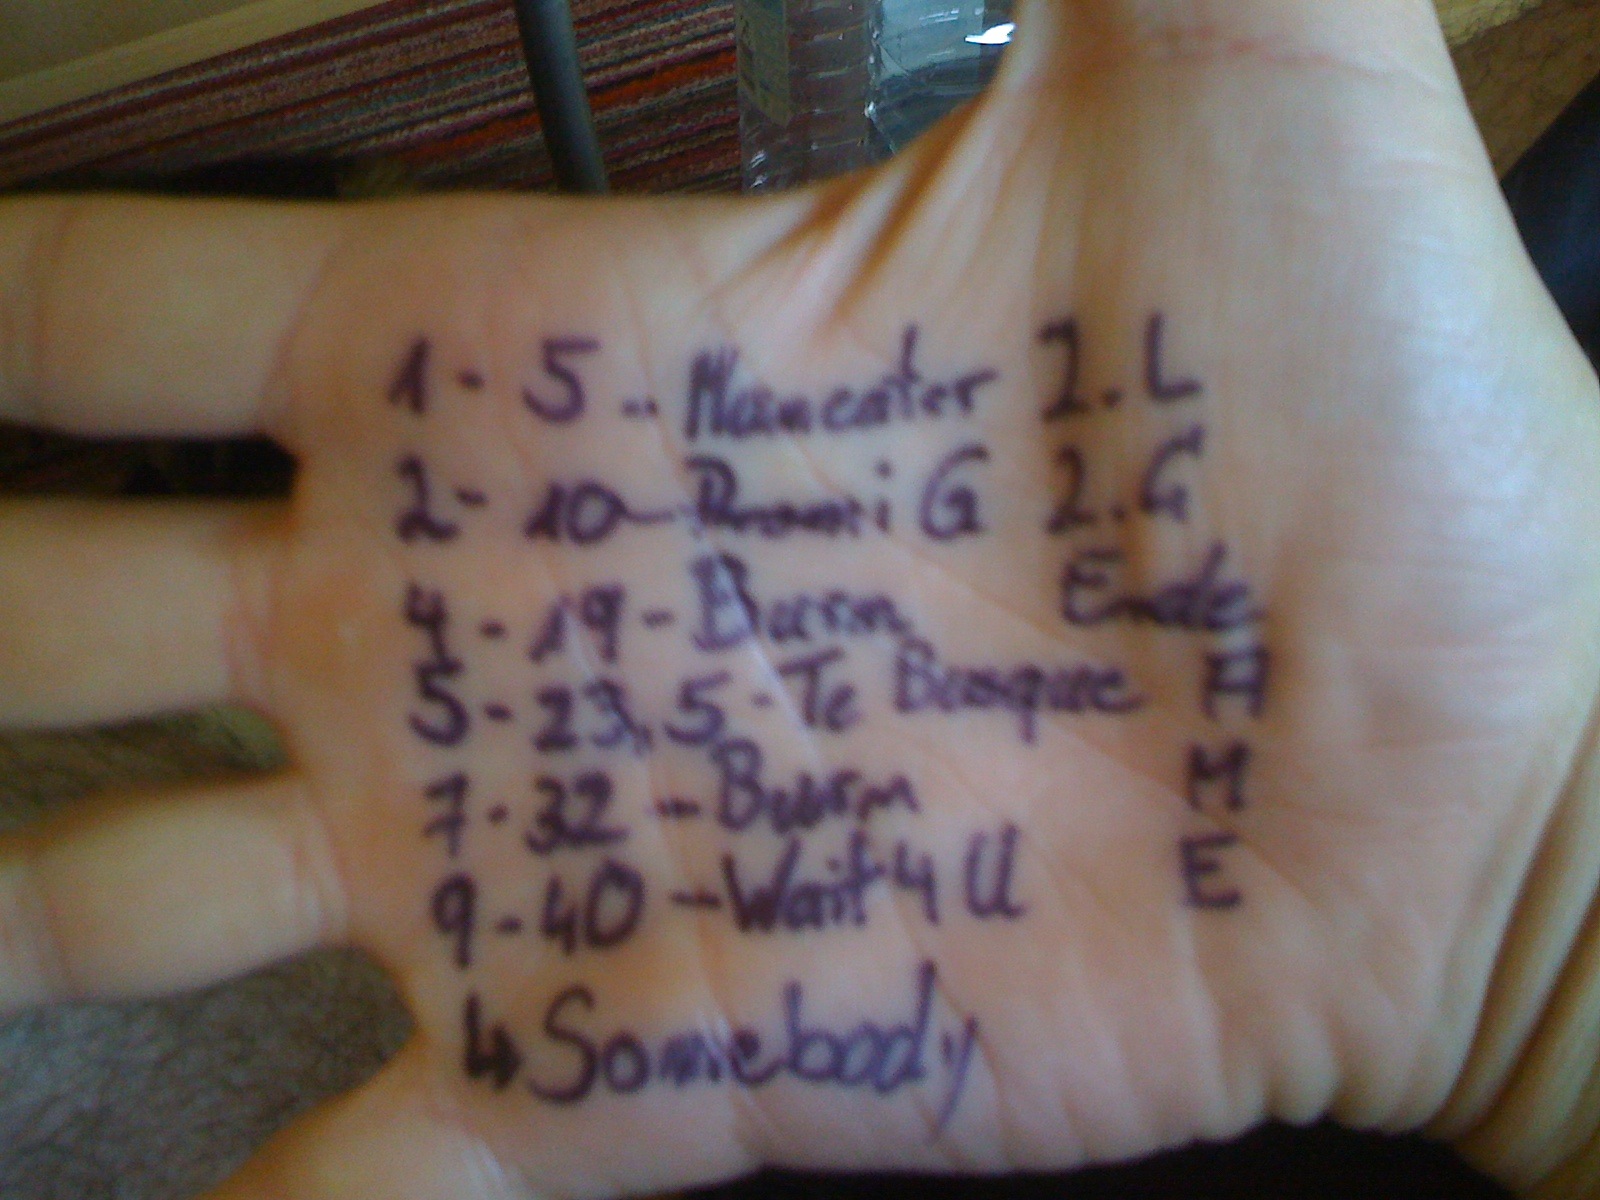 1 - 5 - Maneater 2. L
2 - 10 - Promi G 2. G
4 - 19 - Burn Ende
5 - 23,5 - Te Busque A
7 - 32 - Burn M
9 - 40 - Wait 4 U E
↳ Somebody